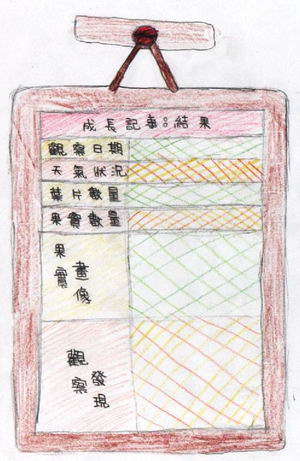 成長記事:結果
觀察日期
天氣狀況
葉片數量
果實數量
果實
畫像
觀察
發現